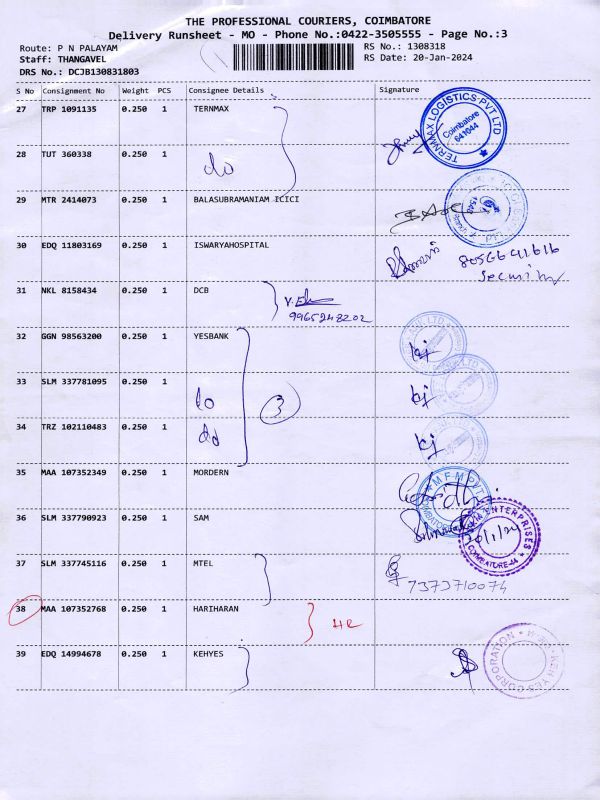 THE PROFESSIONAL COURIERS, COIMBATORE
Delivery Runsheet - MO - Phone No.:0422-3505555 - Page No.:3
Route: P N PALAYAM
RS No.: 1308318
Staff: THANGAVEL
RS Date: 20-Jan-2024
DRS No.: DCJB130831803
S No Consignment No Weight PCS Consignee Details Signature
27 TRP 1091135 0.250 1 TERNMAX
TERNMAX LOGISTICS PVT LTD
Coimbatore
641044
28 TUT 360338 0.250 1 do
29 MTR 2414073 0.250 1 BALASUBRAMANIAM ICICI
30 EDQ 11803169 0.250 1 ISWARYAHOSPITAL
8056641616
Security
31 NKL 8158434 0.250 1 DCB
9965248202
32 GGN 98563200 0.250 1 YESBANK
kj
33 SLM 337781095 0.250 1 do 3 kj
34 TRZ 102110483 0.250 1 do kj
35 MAA 107352349 0.250 1 MORDERN
36 SLM 337790923 0.250 1 SAM
ENTERPRISES
COIMBATORE
20/1/24
37 SLM 337745116 0.250 1 MTEL
7373710074
38 MAA 107352768 0.250 1 HARIHARAN
39 EDQ 14994678 0.250 1 KEHYES
CORPORATION